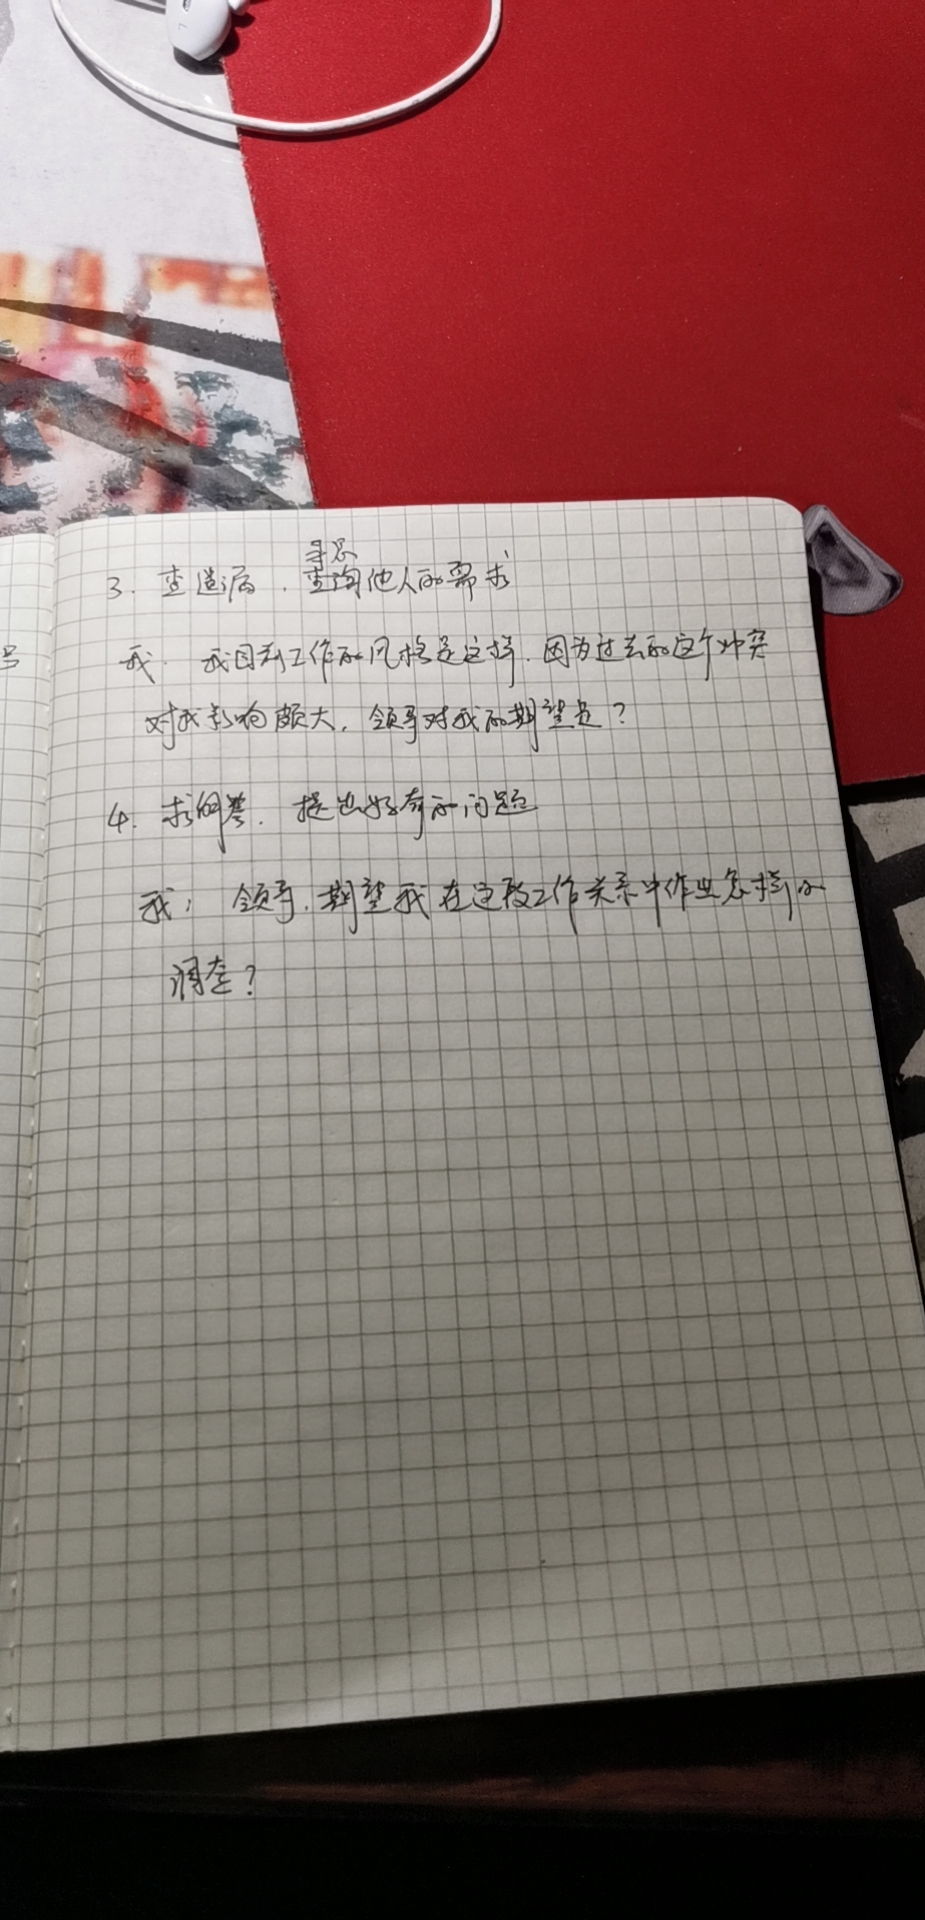 寻求
3. 查遗漏. 查询他人的需求
我. 我目前工作的风格是这样, 因为过去的这个冲突
对我影响颇大, 领导对我的期望是?
4. 求回答. 提出好奇的问题
我: 领导, 期望我在这段工作关系中作出怎样的
调整?